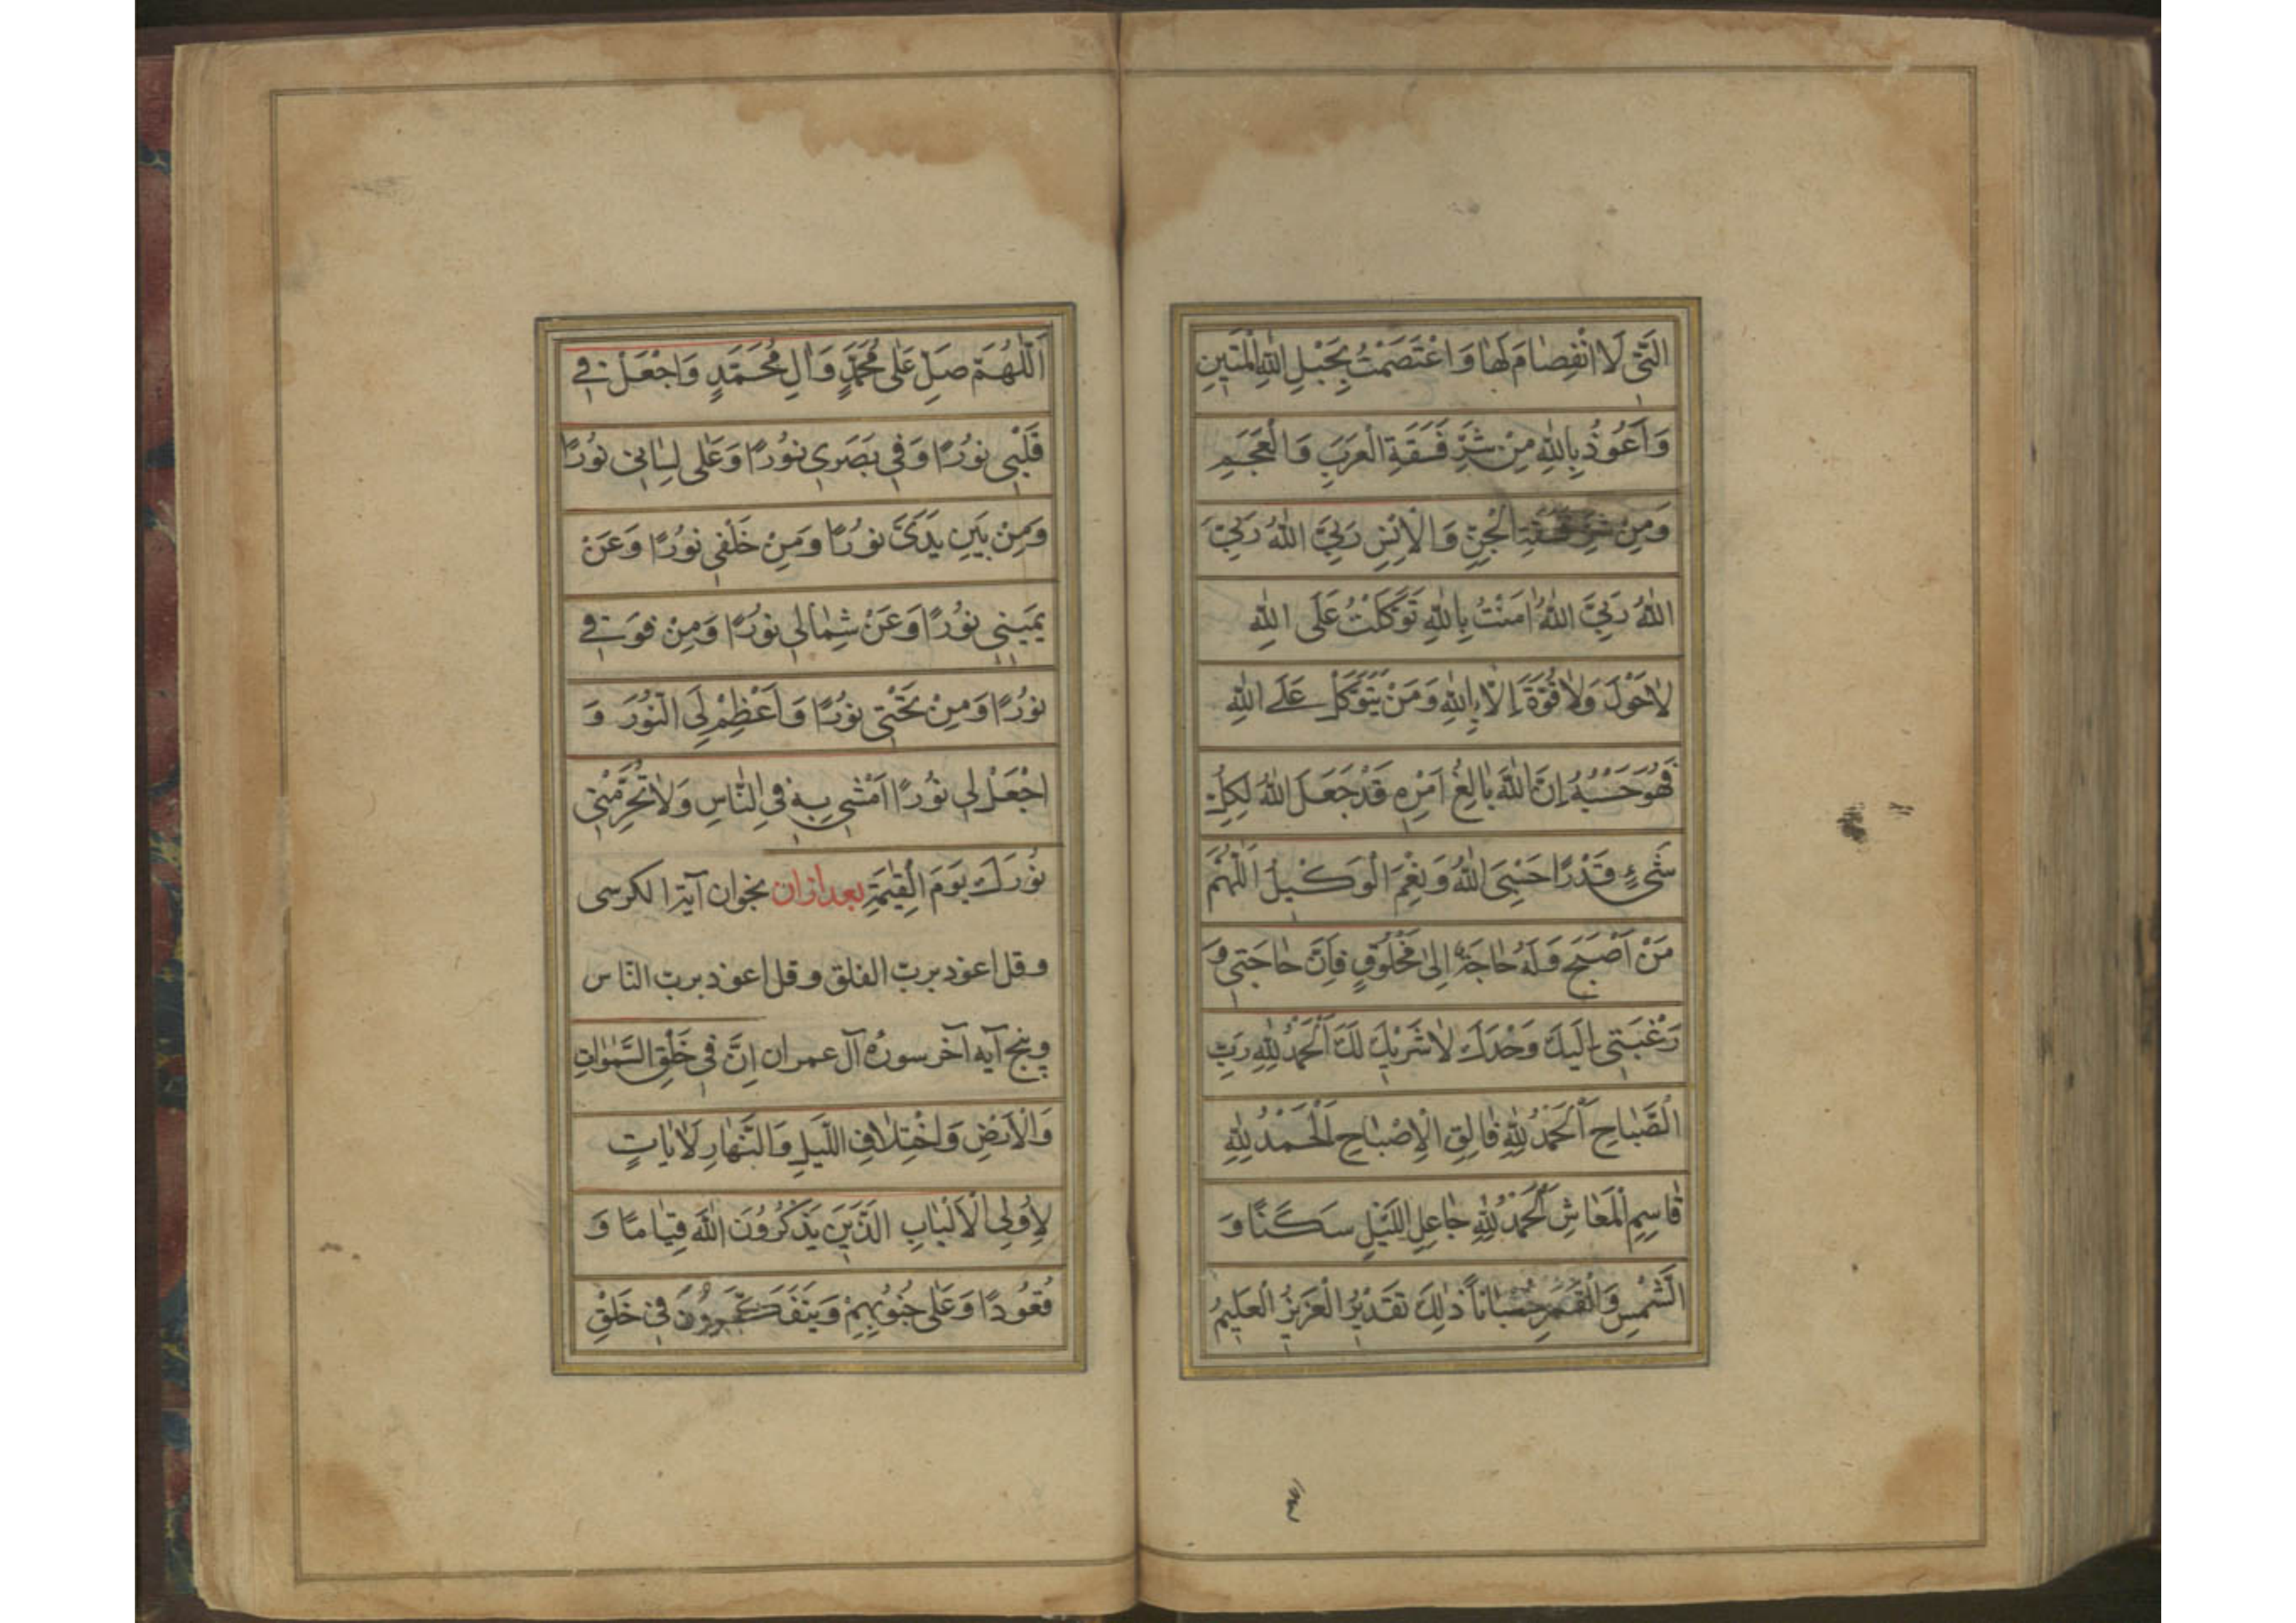 الَّتِي لَا انْفِصَامَ لَهَا وَاعْتَصَمْتُ بِحَبْلِ اللهِ الْمَتِينِ
وَاَعُوذُ بِاللهِ مِنْ شَرِّ فَسَقَةِ الْعَرَبِ وَالْعَجَمِ
وَمِنْ شَرِّ فَسَقَةِ الْجِنِّ وَالْاِنْسِ رَبِّيَ اللهُ رَبِّيَ
اللهُ رَبِّيَ اللهُ اٰمَنْتُ بِاللهِ تَوَكَّلْتُ عَلَى اللهِ
لَاحَوْلَ وَلَا قُوَّةَ اِلَّا بِاللهِ وَمَنْ يَتَوَكَّلْ عَلَى اللهِ
فَهُوَ حَسْبُهُ اِنَّ اللهَ بَالِغُ اَمْرِهِ قَدْ جَعَلَ اللهُ لِكُلِّ
شَيْءٍ قَدْرًا حَسْبِيَ اللهُ وَنِعْمَ الْوَكِيلُ اَللّٰهُمَّ
مَنْ اَصْبَحَ وَلَهُ حَاجَةٌ اِلىٰ مَخْلُوقٍ فَاِنَّ حَاجَتِي وَ
رَغْبَتِي اِلَيْكَ وَحْدَكَ لَا شَرِيْكَ لَكَ اَلْحَمْدُ لِلّٰهِ رَبِّ
الصَّبَاحِ اَلْحَمْدُ لِلّٰهِ فَالِقِ الْاِصْبَاحِ اَلْحَمْدُ لِلّٰهِ
قَاسِمِ الْمَعَاشِ اَلْحَمْدُ لِلّٰهِ جَاعِلِ اللَّيْلِ سَكَنًا وَ
الشَّمْسِ وَالْقَمَرِ حُسْبَاناً ذٰلِكَ تَقْدِيْرُ الْعَزِيزُ الْعَلِيمُ
اَللّٰهُمَّ صَلِّ عَلٰى مُحَمَّدٍ وَاٰلِ مُحَمَّدٍ وَاجْعَلْ فِي
قَلْبِي نُورًا وَفِي بَصَرِي نُورًا وَعَلٰى لِسَانِي نُورًا
وَمِنْ بَيْنِ يَدَيَّ نُورًا وَمِنْ خَلْفِي نُورًا وَعَنْ
يَمِينِي نُورًا وَعَنْ شِمَالِي نُورًا وَمِنْ فَوْقِي
نُورًا وَمِنْ تَحْتِي نُورًا وَاَعْظِمْ لِيَ النُّورَ وَ
اجْعَلْ لِي نُورًا اَمْشِي بِهِ فِي النَّاسِ وَلَا تَحْرِمْنِي
نُورَكَ يَوْمَ الْقِيٰمَةِ بعد ازان بخوان آیة الکرسی
و قل اعوذ بربّ الفلق و قل اعوذ بربّ النّاس
و پنج آیه آخر سورۀ آل عمران اِنَّ فِي خَلْقِ السَّمٰوَاتِ
وَالْاَرْضِ وَاخْتِلَافِ اللَّيْلِ وَالنَّهَارِ لَاٰيَاتٍ
لِاُولِي الْاَلْبَابِ الَّذِينَ يَذْكُرُونَ اللهَ قِيَامًا وَ
قُعُودًا وَعَلٰى جُنُوبِهِمْ وَيَتَفَكَّرُونَ فِي خَلْقِ